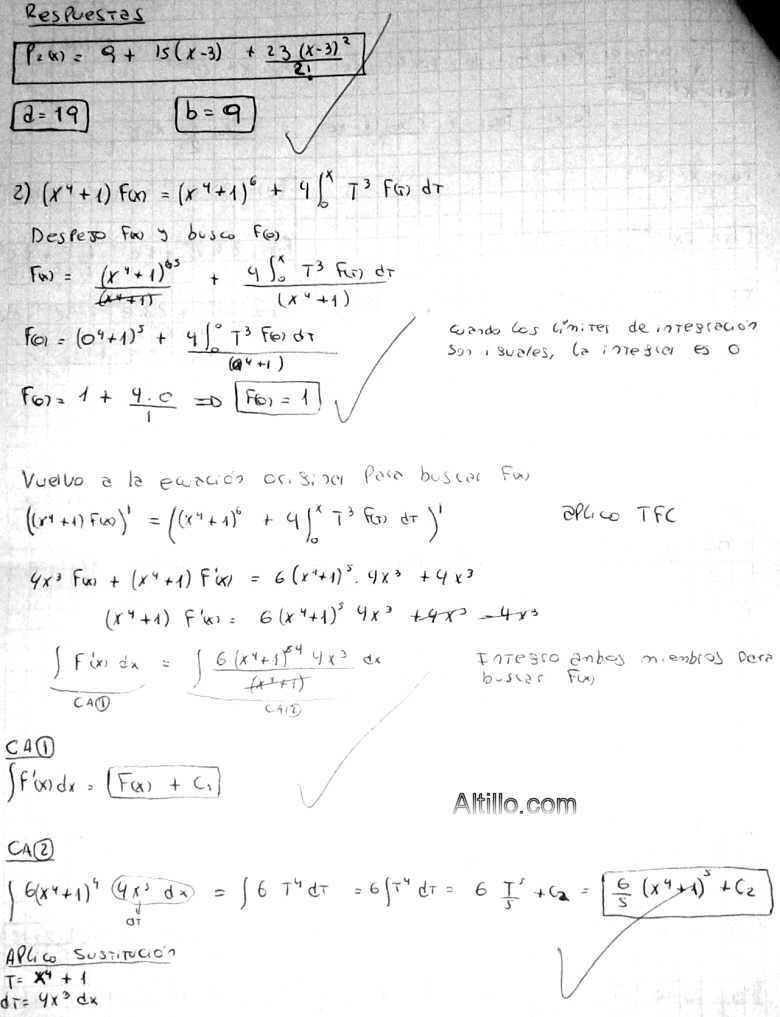 Respuestas
P₂(x) = 9 + 15(x-3) + 23(x-3)²/2!
a=19 b=9
2) (x⁴+1) F(x) = (x⁴+1)⁶ + 4∫₀ˣ T³ F(T) dT
Despejo F(x) y busco F(0)
F(x) = (x⁴+1)⁶⁵/(x⁴+1) + 4∫₀ˣ T³ F(T) dT/(x⁴+1)
F(0) = (0⁴+1)⁵ + 4∫₀⁰ T³ F(0) dT/(0⁴+1)
Cuando los límites de integración
son iguales, la integral es 0
F(0) = 1 + 4.0/1 => F(0) = 1
Vuelvo a la ecuación original para buscar F(x)
((x⁴+1) F(x))' = ((x⁴+1)⁶ + 4∫₀ˣ T³ F(T) dT)' aplico TFC
4x³ F(x) + (x⁴+1) F'(x) = 6(x⁴+1)⁵. 4x³ + 4x³
(x⁴+1) F'(x) = 6(x⁴+1)⁵ 4x³ +4x³ -4x³
∫ F'(x) dx = ∫ 6(x⁴+1)⁵⁴ 4x³/(x⁴+1) dx
CA① CA②
Integro ambos miembros para
buscar F(x)
CA①
∫F'(x) dx = F(x) + C₁
Altillo.com
CA②
∫ 6(x⁴+1)⁴ 4x³ dx = ∫ 6 T⁴ dT = 6∫T⁴ dT = 6 T⁵/5 + C₂ = 6/5 (x⁴+1)⁵ + C₂
dT
Aplico sustitución
T = x⁴ + 1
dT = 4x³ dx